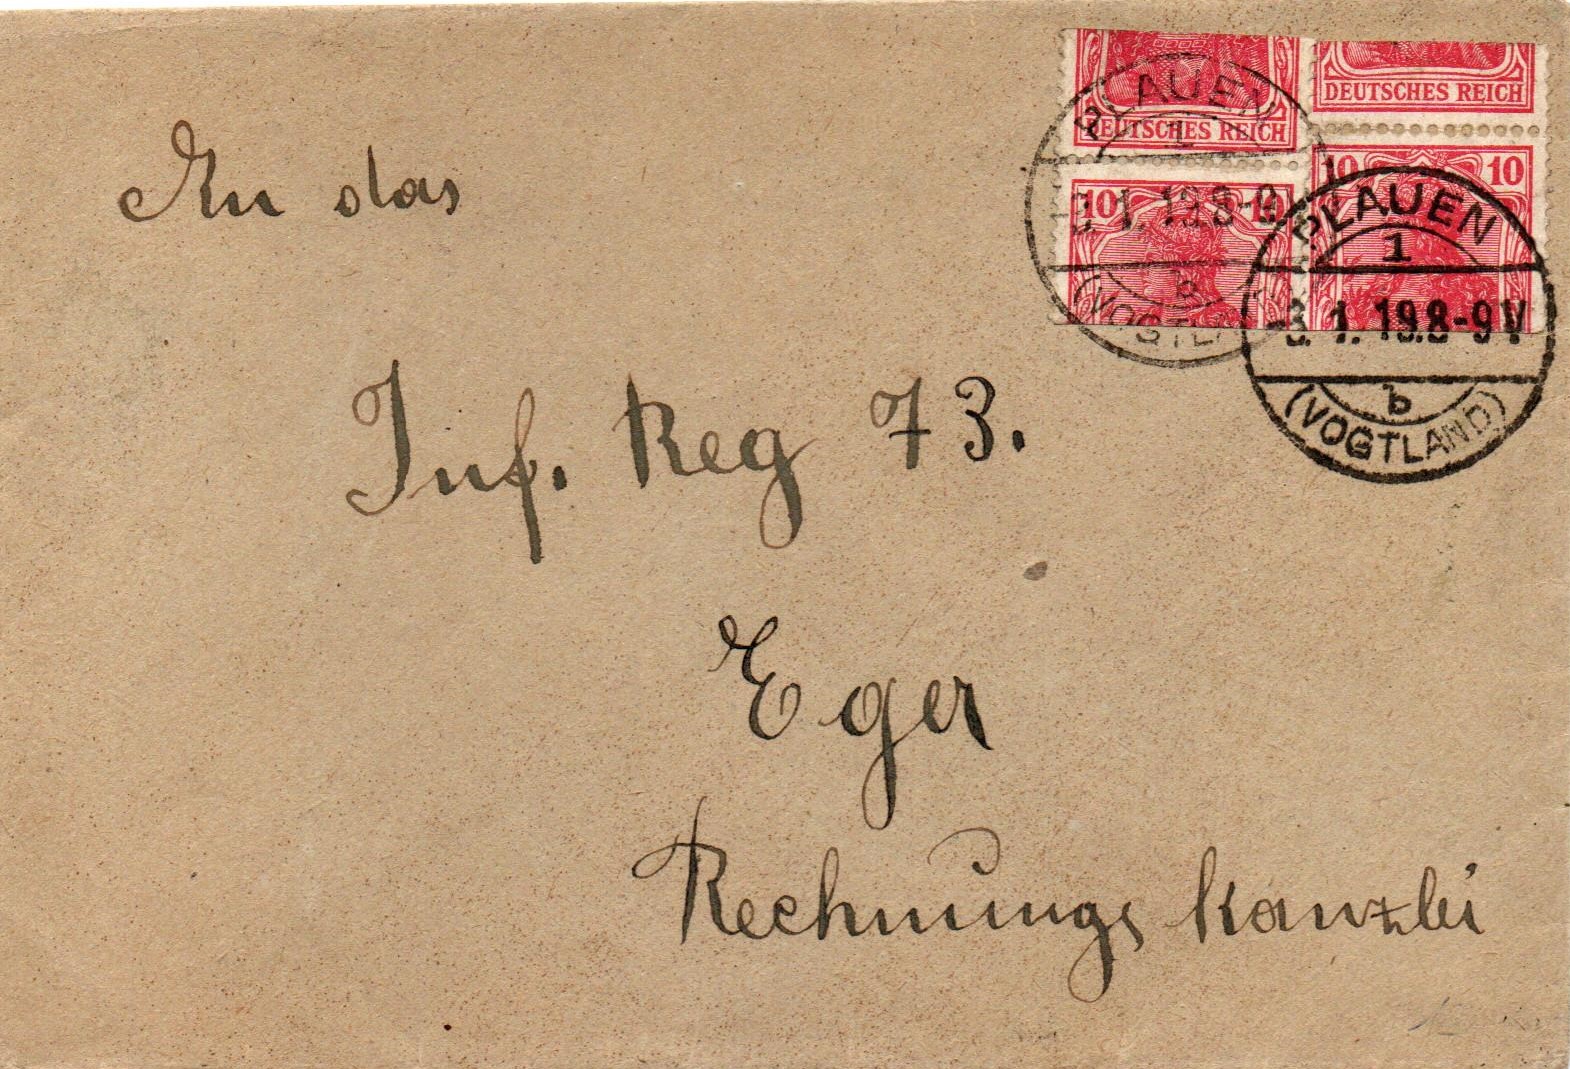 DEUTSCHES REICH
DEUTSCHES REICH
10 10
10 10
PLAUEN
1
3. 1. 19.8-9
b
(VOGTLAND
PLAUEN
1
-3. 1. 19.8-9 V
b
(VOGTLAND)
An das
Inf. Reg 73.
Eger
Rechnungs kanzlei